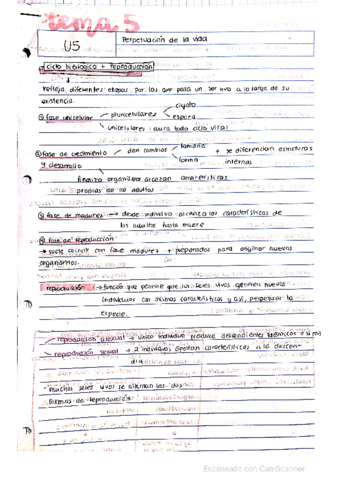 tema 5
U5
Perpetuación de la vida
ciclo biológico + reproducción
refleja diferentes etapas por las que pasa un ser vivo a lo largo de su
existencia.
① fase unicelular
pluricelulares
cigoto
espora
unicelulares: dura todo ciclo vital
② fase de crecimiento
y desarrollo
dan cambios
tamaño
forma
+ se diferencian estructuras
internas
finaliza organismo alcanzan características
propias de los adultos
③ fase de madurez → desde individuo alcanza las características de
los adultos hasta muere
④ fase de reproducción
→ suele coincidir con fase madurez + preparados para originar nuevos
organismos.
reproducción → función que permite que los seres vivos generen nuevos
individuos con mismas características y así, perpetuar la
especie.
reproducción asexual → único individuo produce descendientes idénticos a sí mismo
reproducción sexual → 2 individuos aportan características a la descen-
dencia
muchos seres vivos se alternan las dos
formas de reproducción
Escaneado con CamScanner